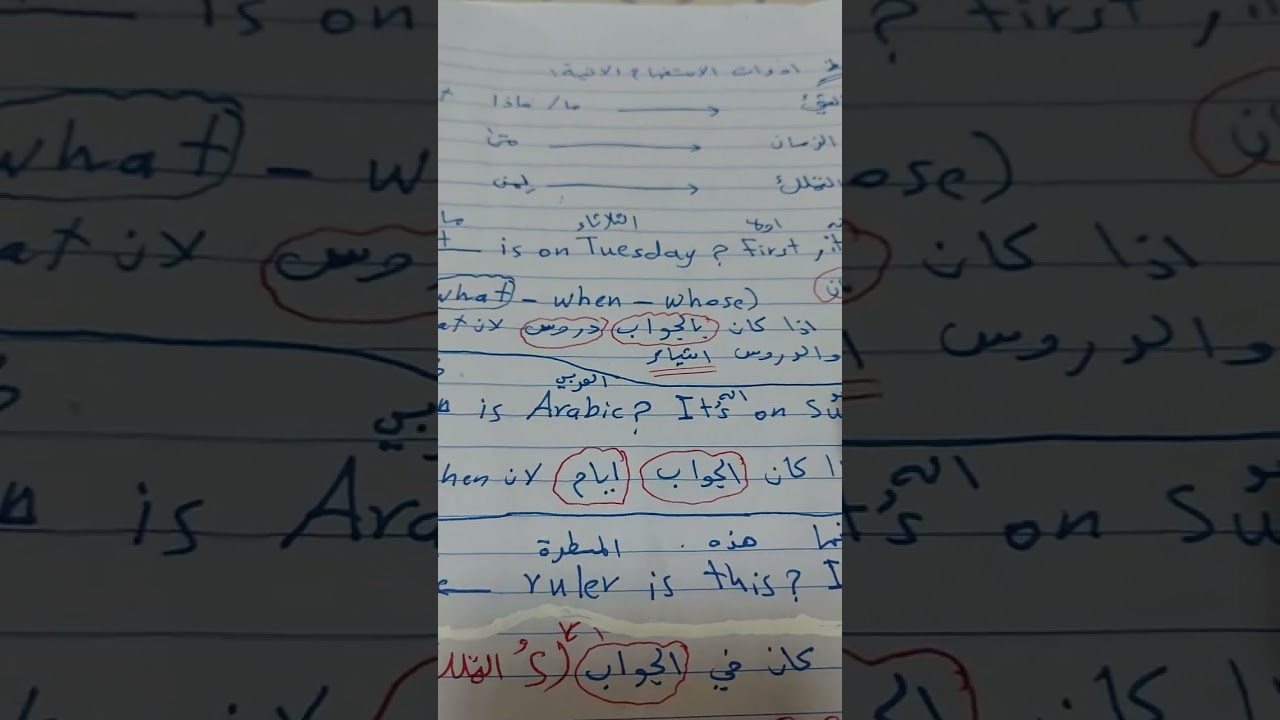 ادوات الاستفهام الاتية:
ما/ ماذا
الزمان متى
التملك لمن
ما الثلاثاء اولا
is on Tuesday ? First , it
what - when - whose)
اذا كان بالجواب دروس لان
والدروس اشياء
العربي
is Arabic? It's on Su
كان الجواب ايام لان hen
هذه المسطرة
ruler is this? I
كان في الجواب (s'